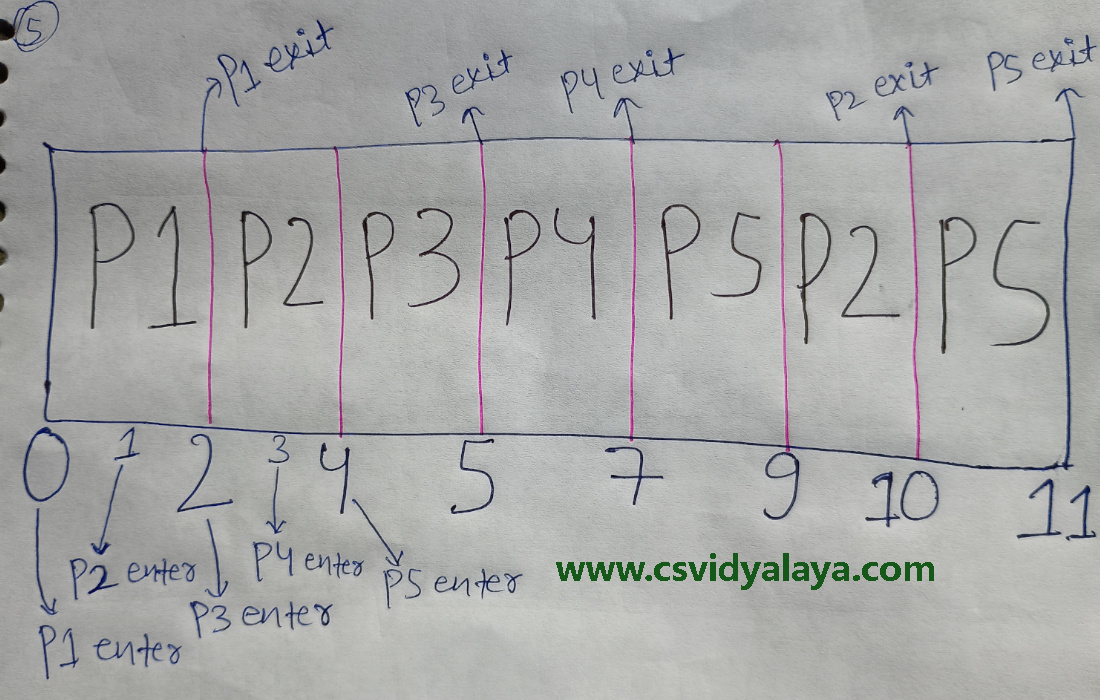 5
P1 exit
P3 exit
P4 exit
P2 exit
P5 exit
P1 P2 P3 P4 P5 P2 P5
0 1 2 3 4 5 7 9 10 11
P2 enter
P4 enter
P5 enter
P3 enter
P1 enter
www.csvidyalaya.com